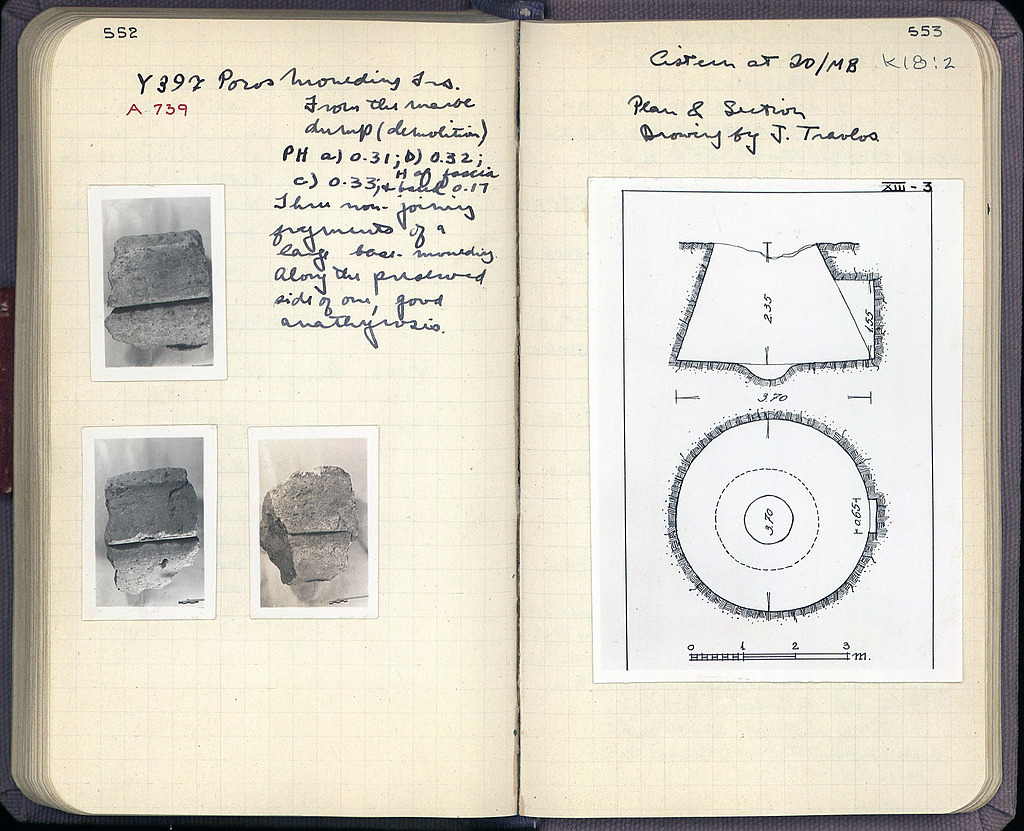 552
Y 397 Poros moulding frs.
A 739
From the marble
dump (demolition)
PH a) 0.31; b) 0.32;
c) 0.33; H of fascia
+ band 0.17
Three non-joining
fragments of a
large base-moulding.
Along the preserved
side of one, good
anathyrosis.
553
Cistern at 20/ΜΒ K18:2
Plan & Section
Drawing by J. Travlos
XIII - 3
2.35
1.55
3.70
3.70
0.65
0 1 2 3
m.